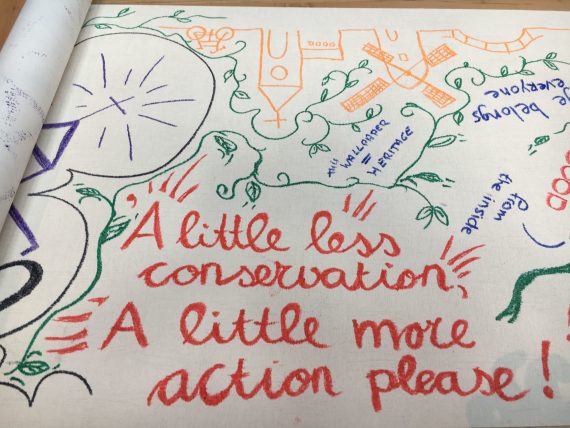 ge belongs
everyone
WALLPAPER
=
HERITAGE
from
the inside
OOD
A little less
conservation,
A little more
action please!